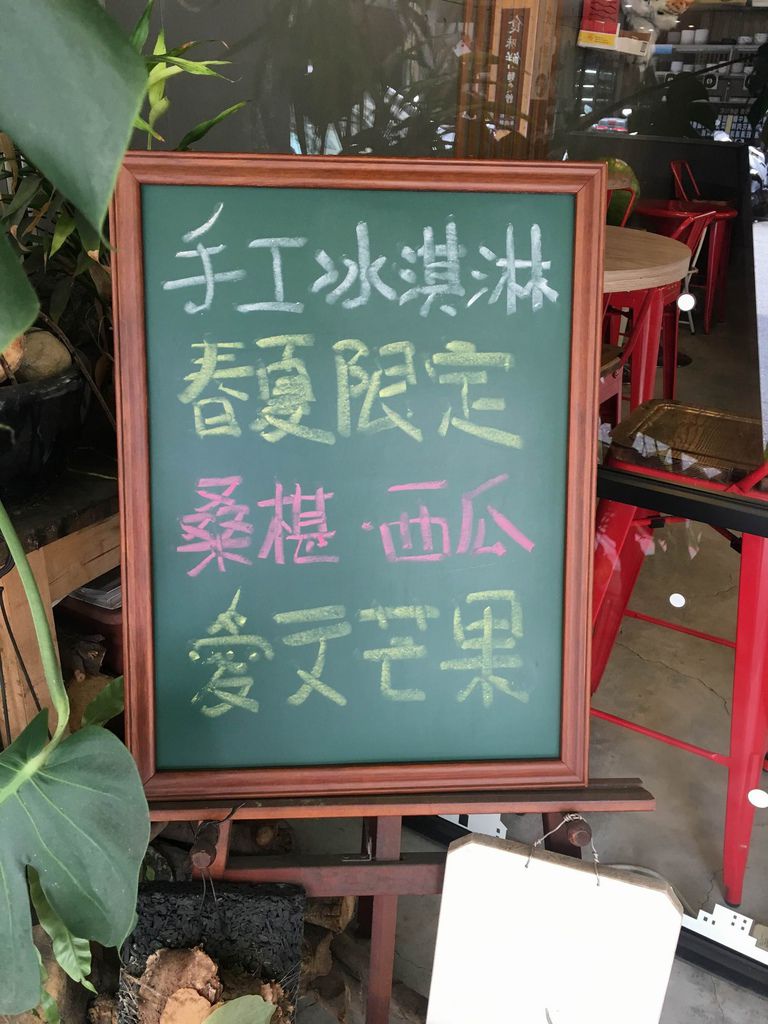 手工冰淇淋
春夏限定
桑椹·西瓜
愛文芒果